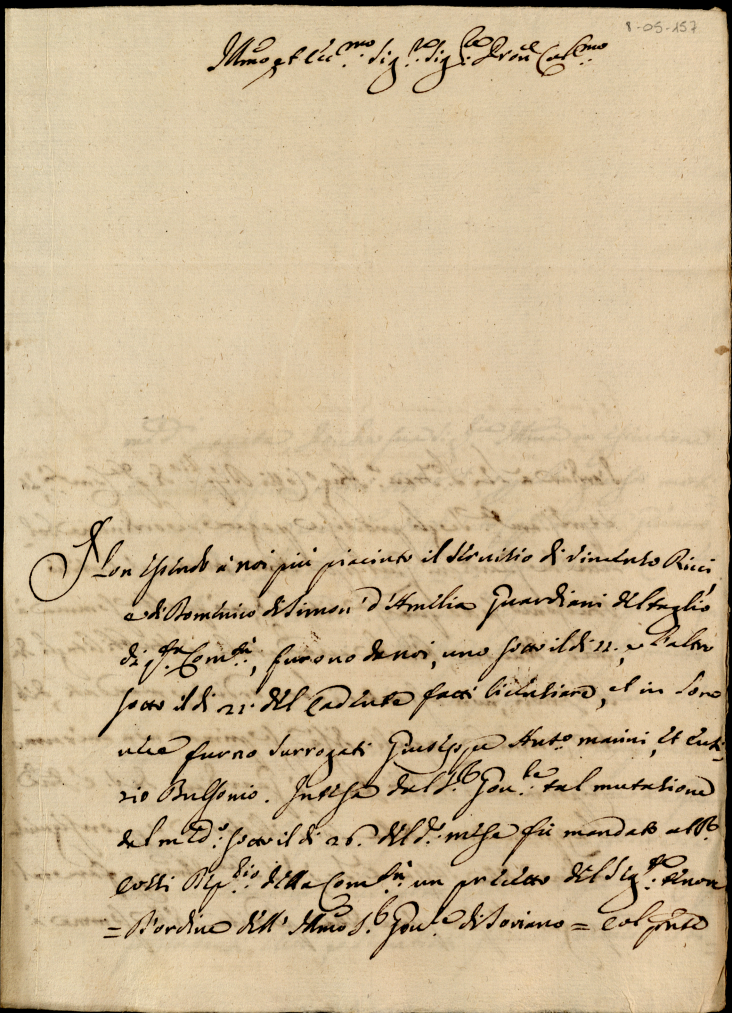 8-05-157
Illmo et Ecc.mo Sig.re Sig.re Pron Col.mo
Non essendo à noi più piaciuto il servitio di Vincenzo Ricci
e di Domenico di Simon' d'Amilia Guardiani del taglio
di q.sta Com.tà, furono da noi, uno sotto il di 22, e l'altro
sotto il di 23 del cadente fatti licentiare, et in loro
vece furno surrogati Giuseppe Ant.o Marini, et Euti-
zio Bulsonio. Intesa dal S.r Gov.re tal mutatione
dal med.o sotto il di 26 del d.o mese fù mandato al
della Com.tà un precetto del seg.te tenore
= D'ordine dell' Illmo S.r Gov.re di Soriano = col p̃nte